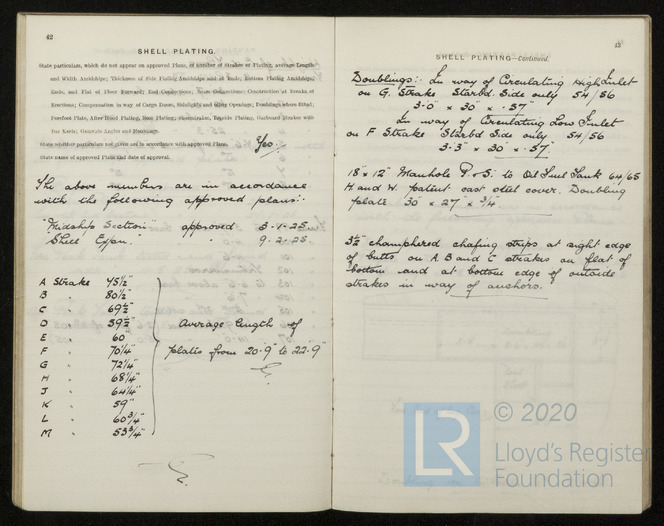 42
SHELL PLATING.
State particulars, which do not appear on approved Plans, of number of Strakes of Plating, average Length
and Width Amidships; Thickness of Side Plating Amidships and at Ends; Bottom Plating Amidships,
Ends, and Flat of Floor Forward; End Connections; Seam Connections; Construction at Breaks of
Erections; Compensation in way of Cargo Doors, Sidelights and other Openings; Doublings where fitted;
Forefoot Plate, After Hood Plating, Boss Plating,
State whether particulars not given are in accordance with approved Plans. Yes.
State name of approved Plans and date of approval.
The above members are in accordance
with the following approved plans:
"Midship Section" approved 3.1.25
"Shell Expan." " 9.2.25
A Strake 45½"
B " 80½"
C " 69½"
D " 59½"
E " 60
F " 70¼"
G " 72¼"
H " 68¼"
J " 64¼"
K " 59"
L " 60¾"
M " 53¾"
Average length of
plates from 20'.9" to 22'.9"
43
SHELL PLATING—Continued.
Doublings: In way of Circulating High Inlet
on G. Strake Starbd. Side only 54/56
3'.0" x 30" x .57"
In way of Circulating Low Inlet
on F Strake Starbd Side only 54/56
3'.3" x 30" x .57"
18" x 12" Manhole P. & S. to Oil Fuel Tank 64/65
H and W. patent cast steel cover. Doubling
plate 30" x 27" x ¾"
3½" champhered chafing strips at right edge
of butts on A B and C strakes on flat of
bottom and at bottom edge of outside
strakes in way of anchors.
LR
© 2020
Lloyd's Register
Foundation